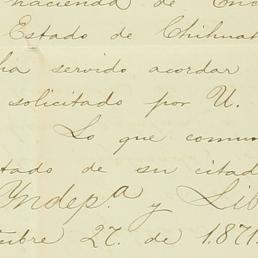 hacienda de Enc
Estado de Chihuah
ha servido acordar
solicitado por U.
Lo que comun
tado de su citad
Yndep.a y Lib
tubre 27. de 1871.